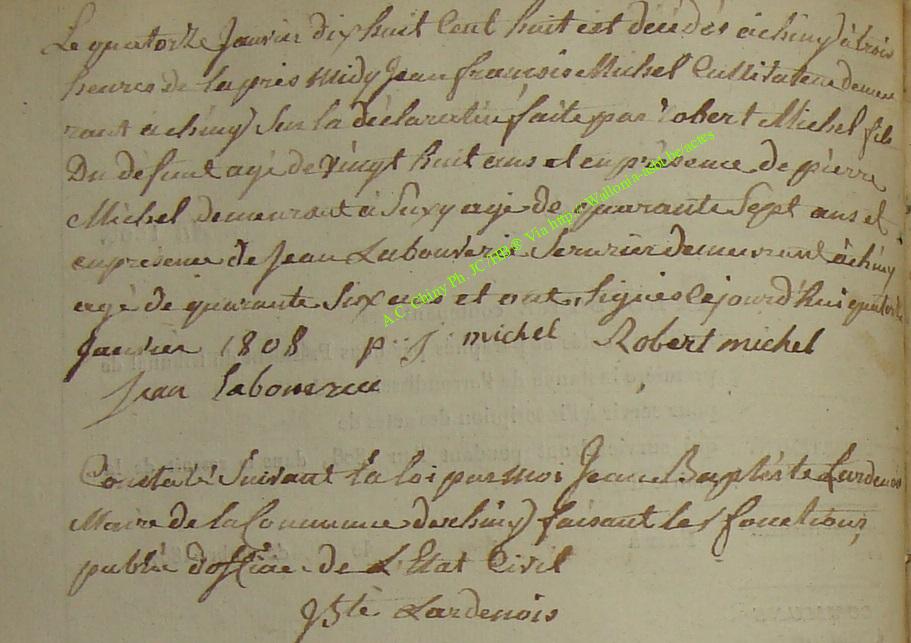 Le quatorze Janvier dix huit Cent huit est décédés à chiny à trois
heures de laprès midy Jean françois Michel Cultivateur demeu
rant à chiny Sur la déclaration faite par Robert Michel fils
Du défunt agé de Vingt huit ans et en présence de pierre
Michel demeurant à Suxy agé de quarante Sept ans et
en présence de Jean Labouverie Serurier demeurant à chiny
agé de quarante Six ans et ont Signés lejourd'hui quatorze
Janvier 1808 p. J michel Robert michel
Jean labouverie
A.C. Chiny Ph. JC HB® Via http://Wallonia-asbl.be/actes
Constaté Suivant la loi par moi Jean Baptiste Lardenois
Maire de la Commune de chiny faisant les fonctions
public d'officier de L'Etat Civil
Jbte Lardenois